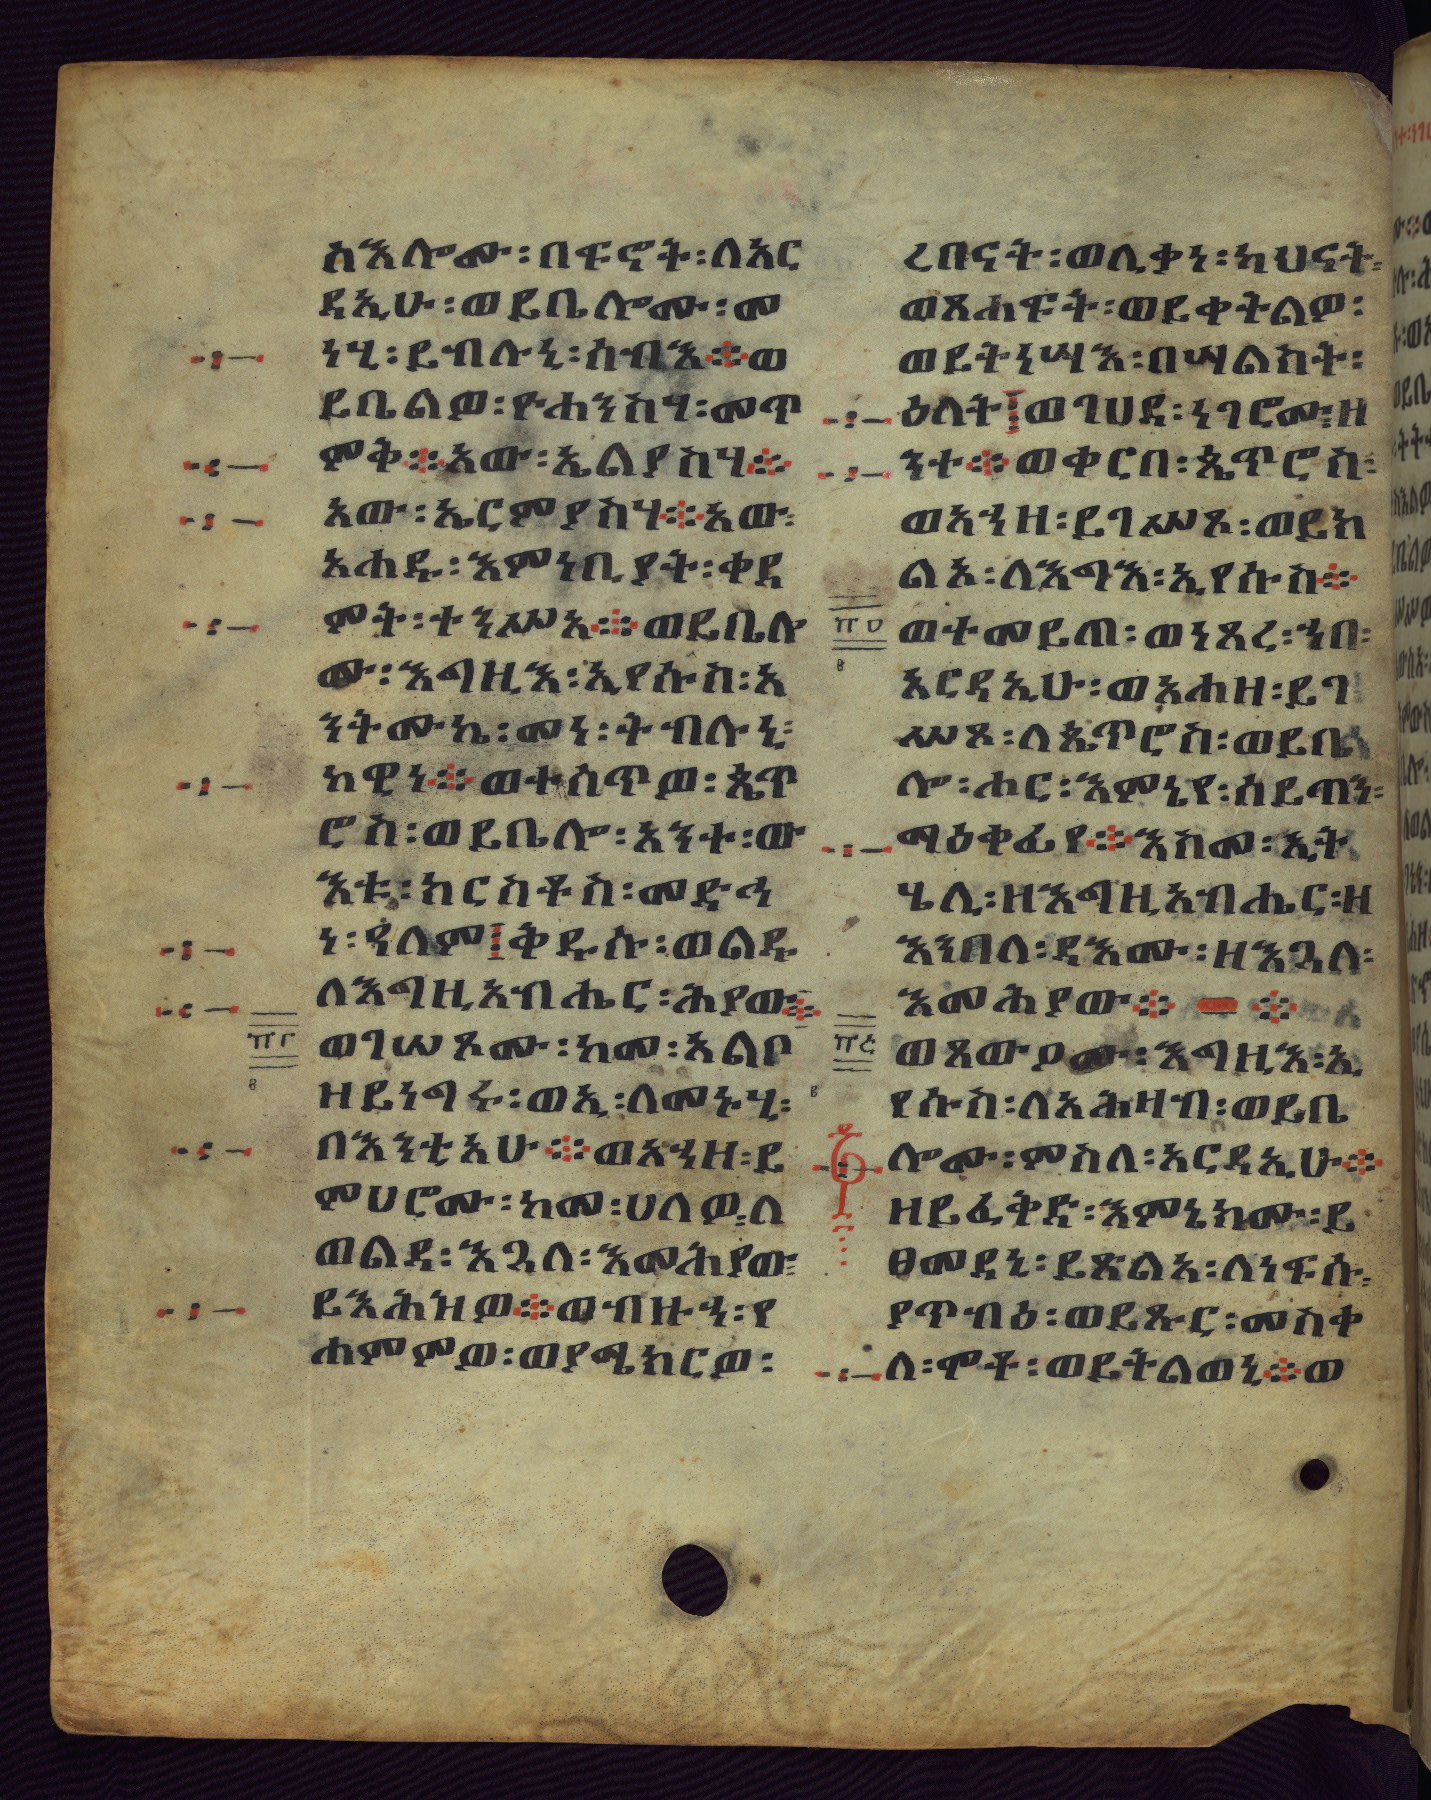 ስእሎሙ፡በፍኖት፡ለአር
ዳኢሁ፡ወይቤሎሙ፡መ
ነሂ፡ይብሉኒ፡ሰብእ፨ወ
ይቤልዎ፡ዮሐንስሃ፡መጥ
ምቅ፨አው፡ኤልያስሃ፨
አው፡ኤርምያስሃ፨አው፡
አሐዱ፡እምነቢያት፡ቀዳ
ምት፡ተንሥአ፨ወይቤሎ
ሙ፡እግዚእ፡ኢየሱስ፡አ
ንትሙኬ፡መነ፡ትብሉኒ፡
ከዊነ፨ወተሰጥዎ፡ጴጥ
ሮስ፡ወይቤሎ፡አንተ፡ው
እቱ፡ክርስቶስ፡መድኅ
ነ፡ዓለም፤ቅዱሱ፡ወልዱ
ለእግዚአብሔር፡ሕያው፨
ፐ፫
ወገሠጾሙ፡ከመ፡አልቦ
ዘይነግሩ፡ወኢ፡ለመኑሂ፡
በእንቲአሁ፨ወአኀዘ፡ይ
ምህሮሙ፡ከመ፡ሀለዎ፡ለ
ወልደ፡እጓለ፡እመሕያው፡
ይእሕዝዎ፨ወብዙኀ፡የ
ሐምምዎ፡ወያሜክርዎ፡
ረበናት፡ወሊቃነ፡ካህናት፡
ወጸሐፍት፡ወይቀትልዎ፡
ወይትነሣእ፡በሣልስት፡
ዕለት፤ወገሀደ፡ነገሮሙ፡ዘ
ንተ፨ወቀርበ፡ጴጥሮስ፡
ወአኀዘ፡ይገሥጾ፡ወይክ
ልኦ፡ለእግእ፡ኢየሱስ፨
ፐ፬
ወተመይጠ፡ወነጸረ፡ኀበ፡
አርዳኢሁ፡ወአሐዘ፡ይገ
ሥጾ፡ለጴጥሮስ፡ወይቤ
ሎ፡ሑር፡እምኔየ፡ሰይጣን፡
ማዕቀፊየ፨እስመ፡ኢት
ሄሊ፡ዘእግዚአብሔር፡ዘ
እንበለ፡ዳእሙ፡ዘእጓለ፡
እመሕያው፨ ፨
ፐ፭
ወጸውዖሙ፡እግዚእ፡ኢ
የሱስ፡ለአሕዛብ፡ወይቤ
ሎሙ፡ምስለ፡አርዳኢሁ፨
ዘይፈቅድ፡እምኔክሙ፡ይ
ፀመደኒ፡ይጽልአ፡ለነፍሱ፡
ያጥብዕ፡ወይጹር፡መስቀ
ለ፡ሞቶ፡ወይትልወኒ፨ወ